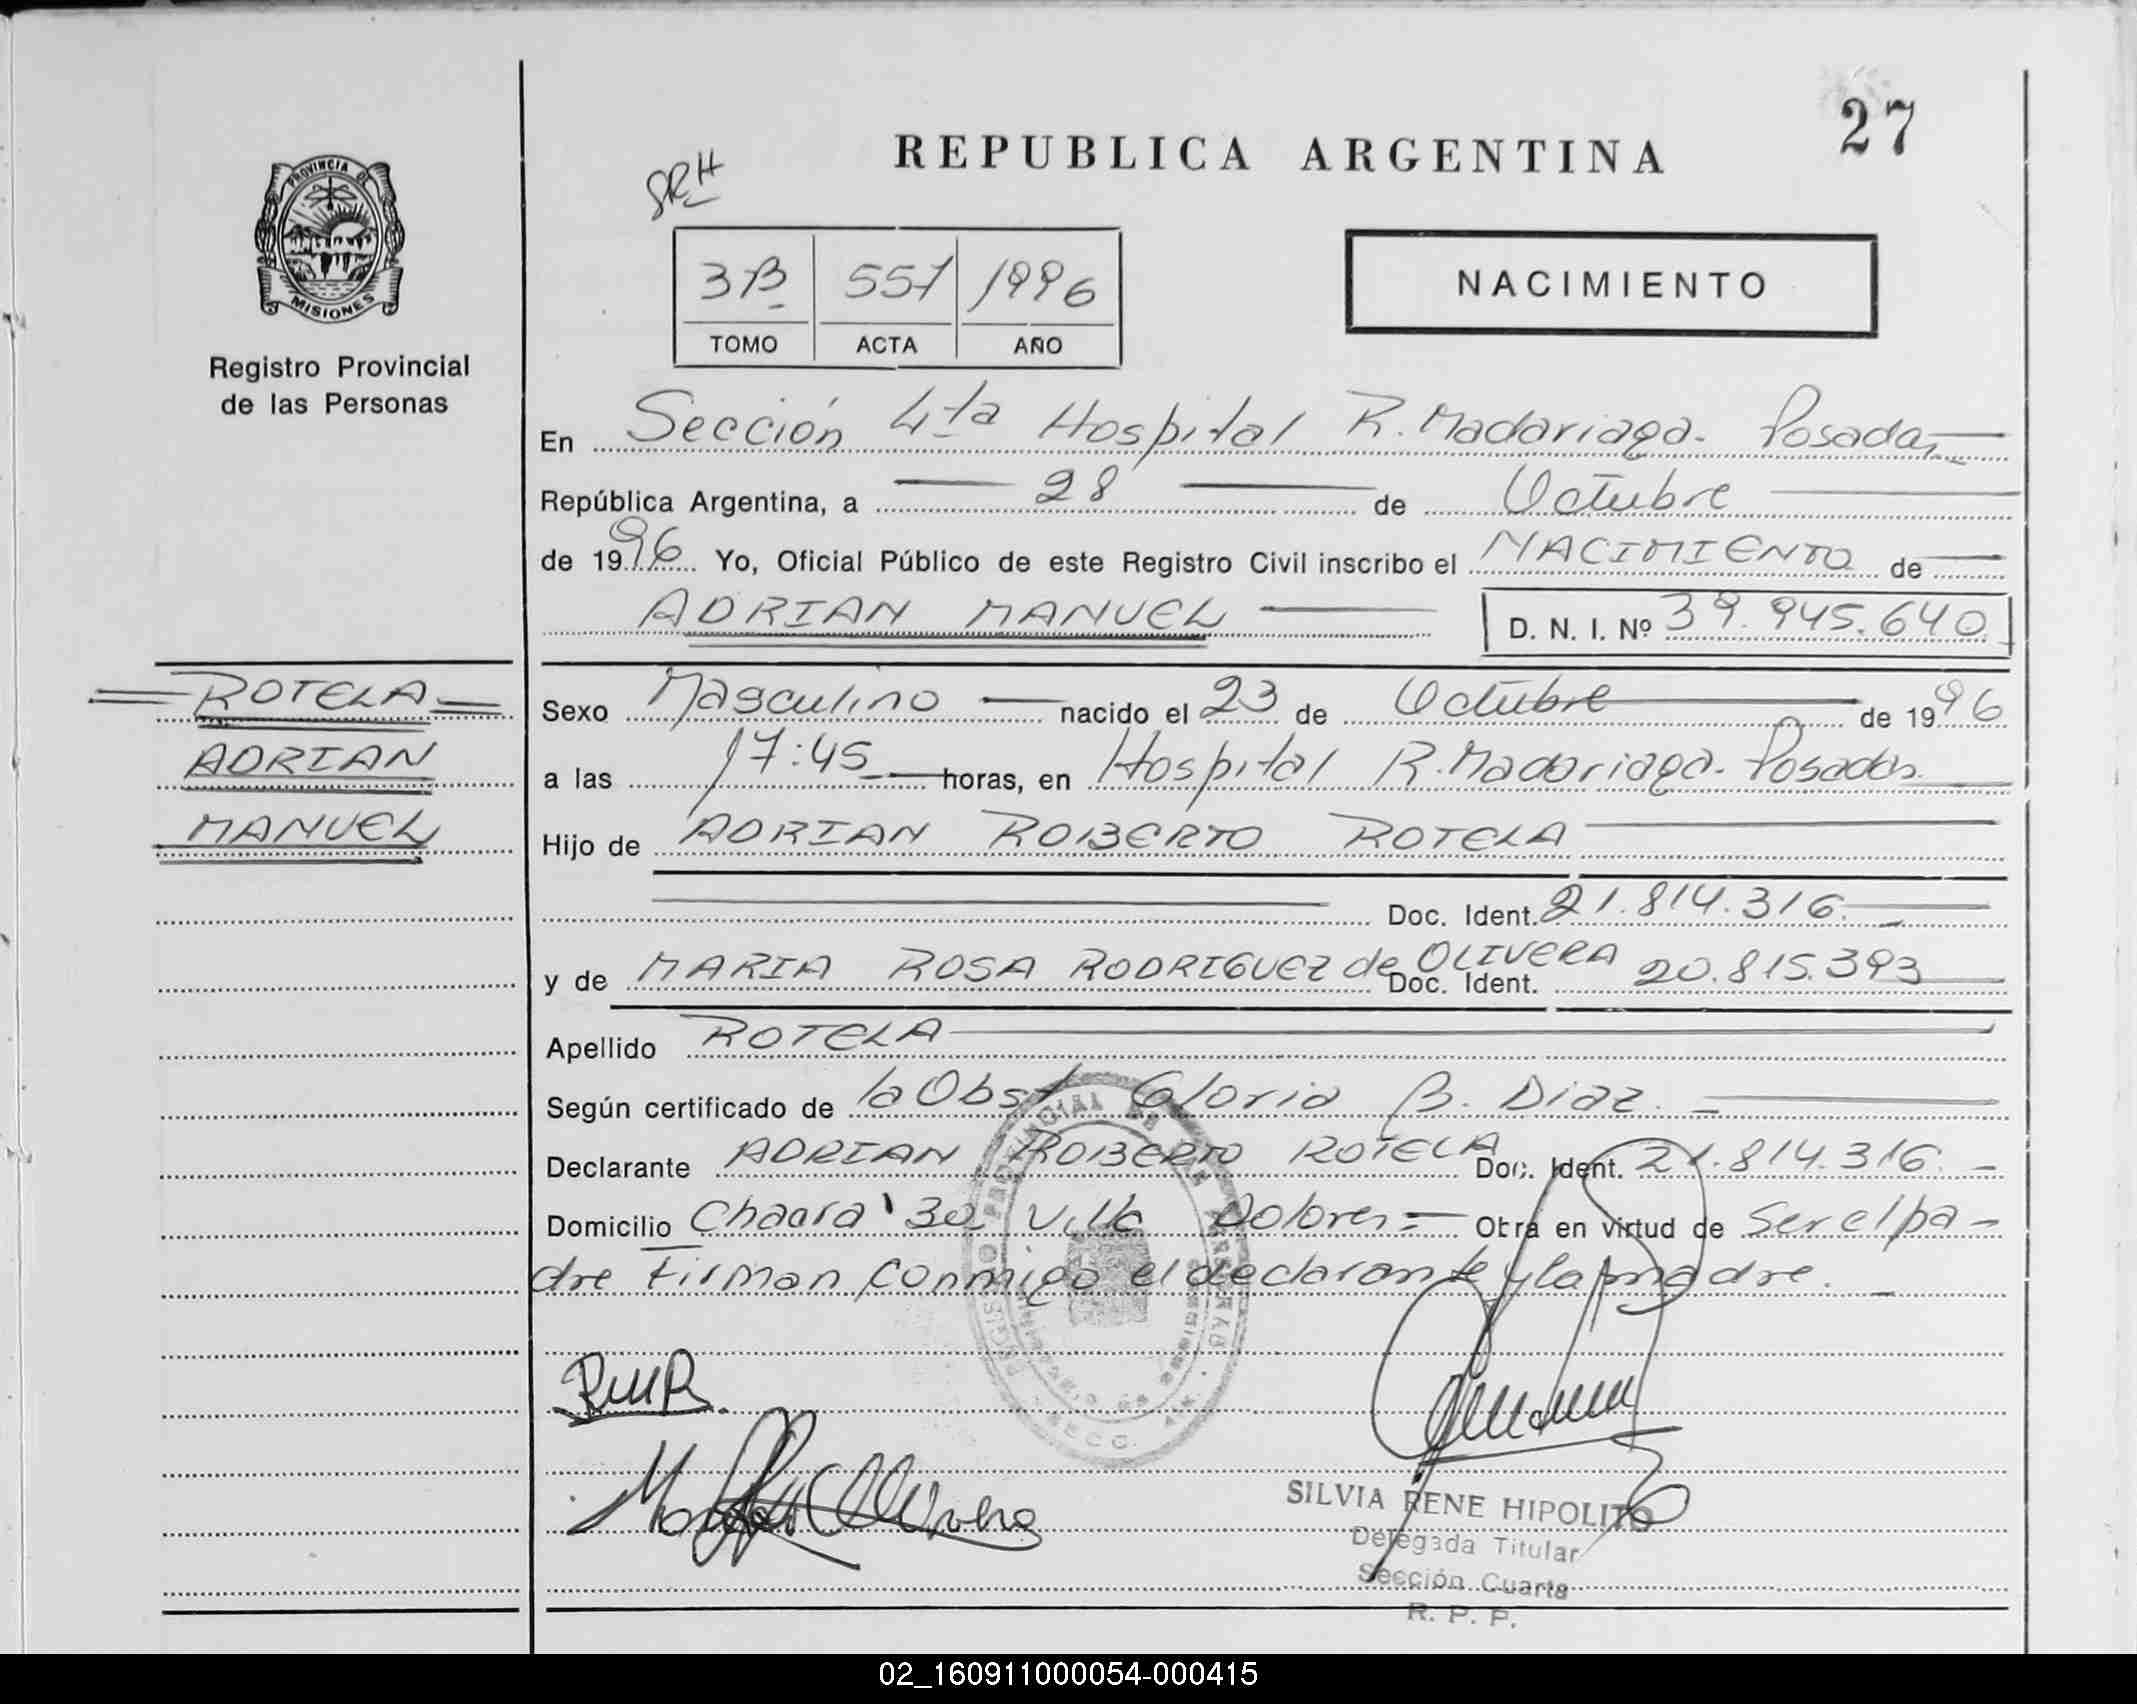 27
REPUBLICA ARGENTINA
SRH
PROVINCIA DE
MISIONES
Registro Provincial
de las Personas
3B 551 1996
TOMO ACTA AÑO
NACIMIENTO
En Sección 4ta Hospital R. Madariaga. Posadas
República Argentina, a 28 de Octubre
de 1996 Yo, Oficial Público de este Registro Civil inscribo el NACIMIENTO de
ADRIAN MANUEL D. N. I. Nº 39.945.640
ROTELA
ADRIAN
MANUEL
Sexo Masculino nacido el 23 de Octubre de 1996
a las 17:45 horas, en Hospital R. Madariaga. Posadas
Hijo de ADRIAN ROBERTO ROTELA
Doc. Ident. 21.814.316
y de MARIA ROSA RODRIGUEZ de OLIVERA Doc. Ident. 20.815.393
Apellido ROTELA
Según certificado de la Obst Gloria B. Diaz.
Declarante ADRIAN ROBERTO ROTELA Doc. Ident. 21.814.316
Domicilio Chacra 32 Villa Dolores Obra en virtud de Ser el pa-
dre Firman conmigo el declarante y la madre.
SILVIA RENE HIPOLITO
Delegada Titular
Sección Cuarta
R. P. P.
02_160911000054-000415